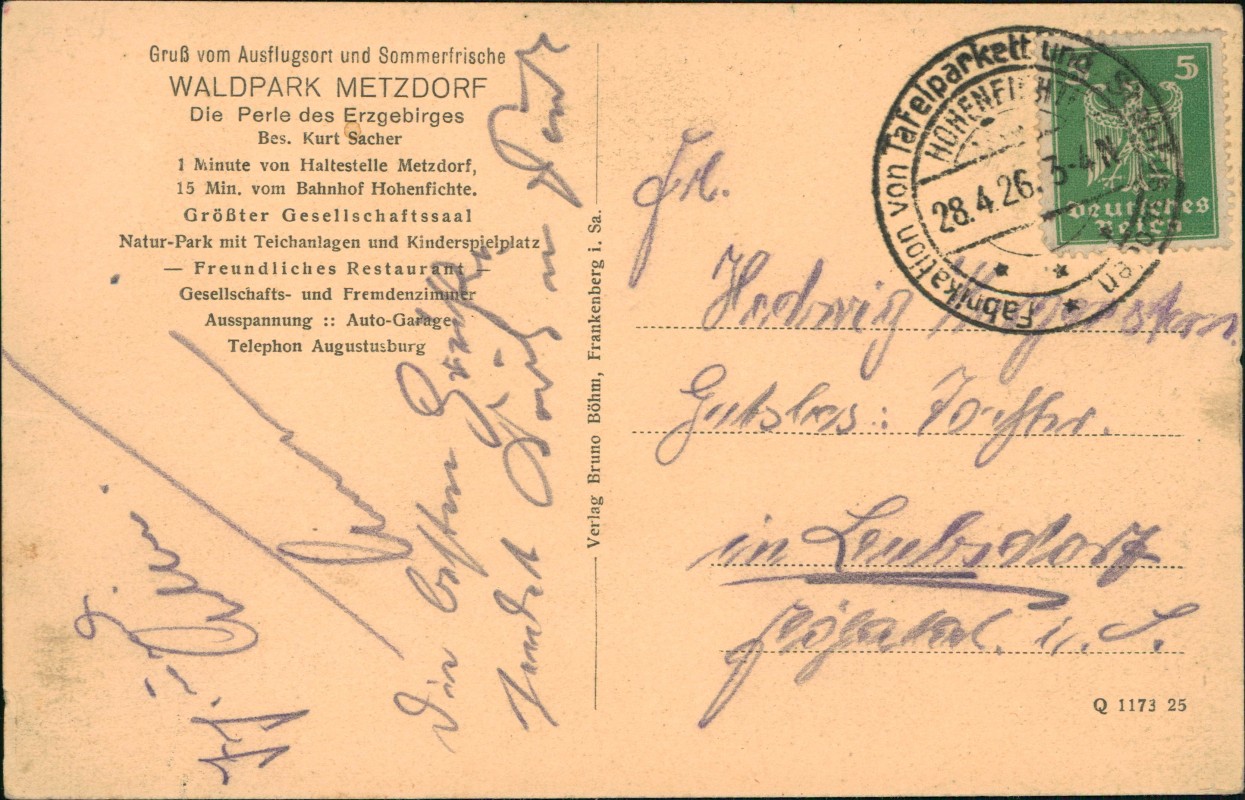 Gruß vom Ausflugsort und Sommerfrische
WALDPARK METZDORF
Die Perle des Erzgebirges
Bes. Kurt Sacher
1 Minute von Haltestelle Metzdorf,
15 Min. vom Bahnhof Hohenfichte.
Größter Gesellschaftssaal
Natur-Park mit Teichanlagen und Kinderspielplatz
— Freundliches Restaurant —
Gesellschafts- und Fremdenzimmer
Ausspannung :: Auto-Garage
Telephon Augustusburg
Die besten Grüße
sendet Euch
Verlag Bruno Böhm, Frankenberg i. Sa.
Fabrikation von Tafelparkett und
HOHENFICHTE
28.4.26. 3-4 N
5
Deutsches
Reich
Frl.
Hedwig
Gutsbes: Tochter.
in Leubsdorf
Flöhatal. i. S.
Q 1173 25